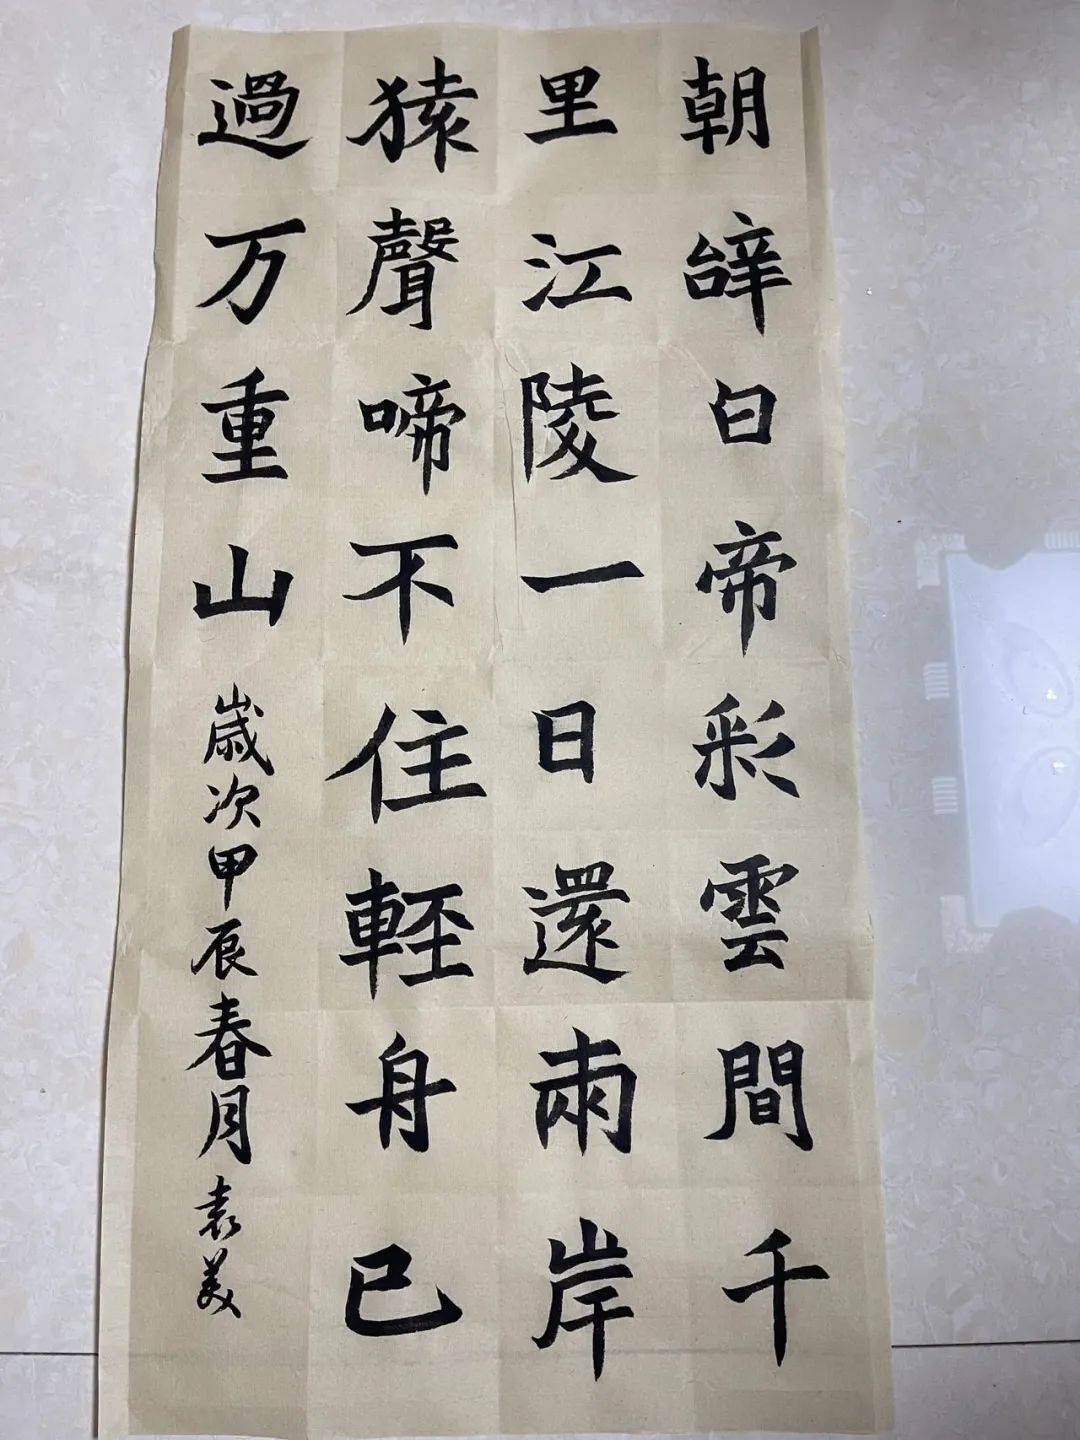 朝辤白帝彩雲間千
里江陵一日還兩岸
猿聲啼不住輕舟已
過万重山
歲次甲辰春月袁美